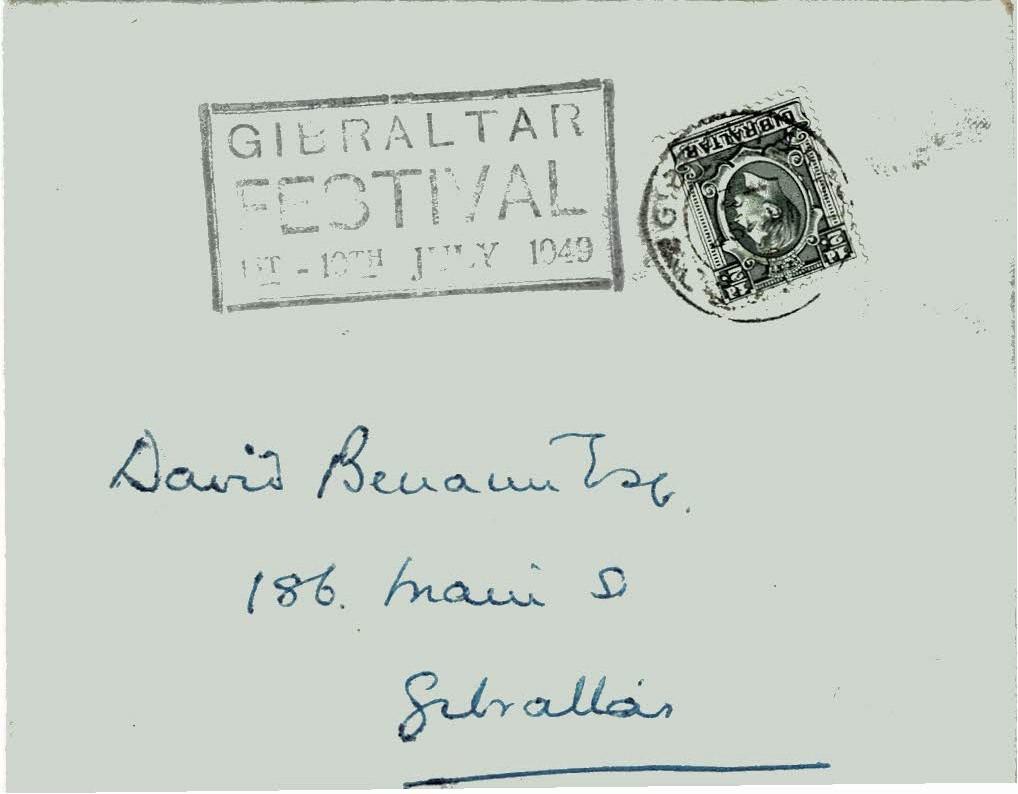 GIBRALTAR
FESTIVAL
1ST - 10TH JULY 1949
GIBRALTAR
½d. ½d.
David Benaim Esq.
186. Main S
Gibraltar